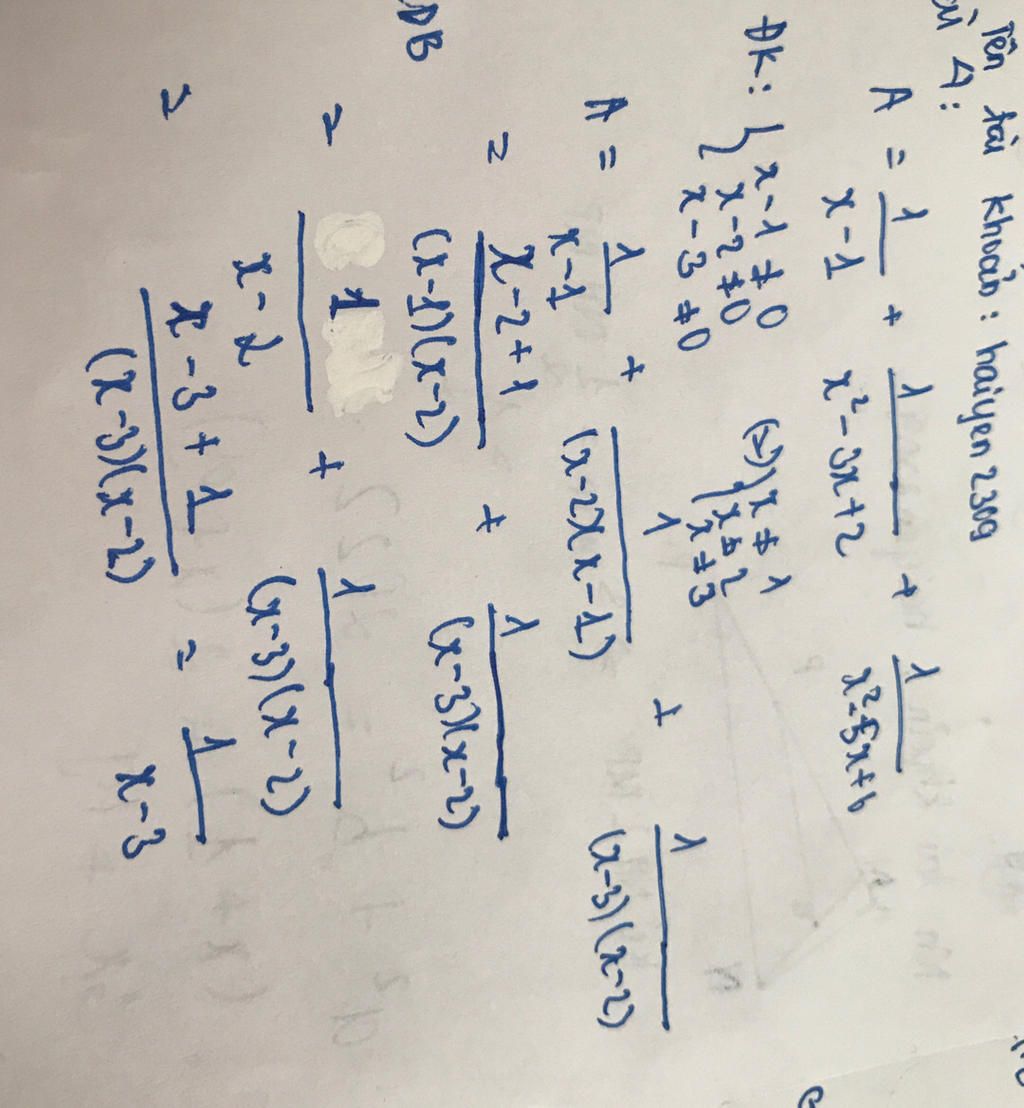 Tên tài khoản: haiyen2309
ài 4:
A = 1/(x-1) + 1/(x²-3x+2) + 1/(x²-5x+6)
ĐK: { x-1≠0 (=) { x≠1
x-2≠0 x≠2
x-3≠0 x≠3
A = 1/(x-1) + 1/((x-2)(x-1)) + 1/((x-3)(x-2))
= (x-2+1)/((x-1)(x-2)) + 1/((x-3)(x-2))
= 1/(x-2) + 1/((x-3)(x-2))
= (x-3+1)/((x-3)(x-2)) = 1/(x-3)